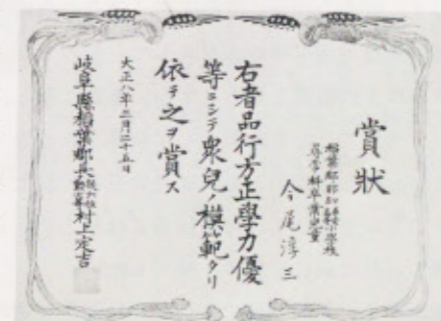 賞狀
稲葉郡那加尋常小学校
尋常科卒業児童
今尾淳三
右者品行方正學力優
等ニシテ衆兒ノ模範タリ
依テ之ヲ賞ス
大正八年三月二十五日
岐阜縣稲葉郡長
村上定吉